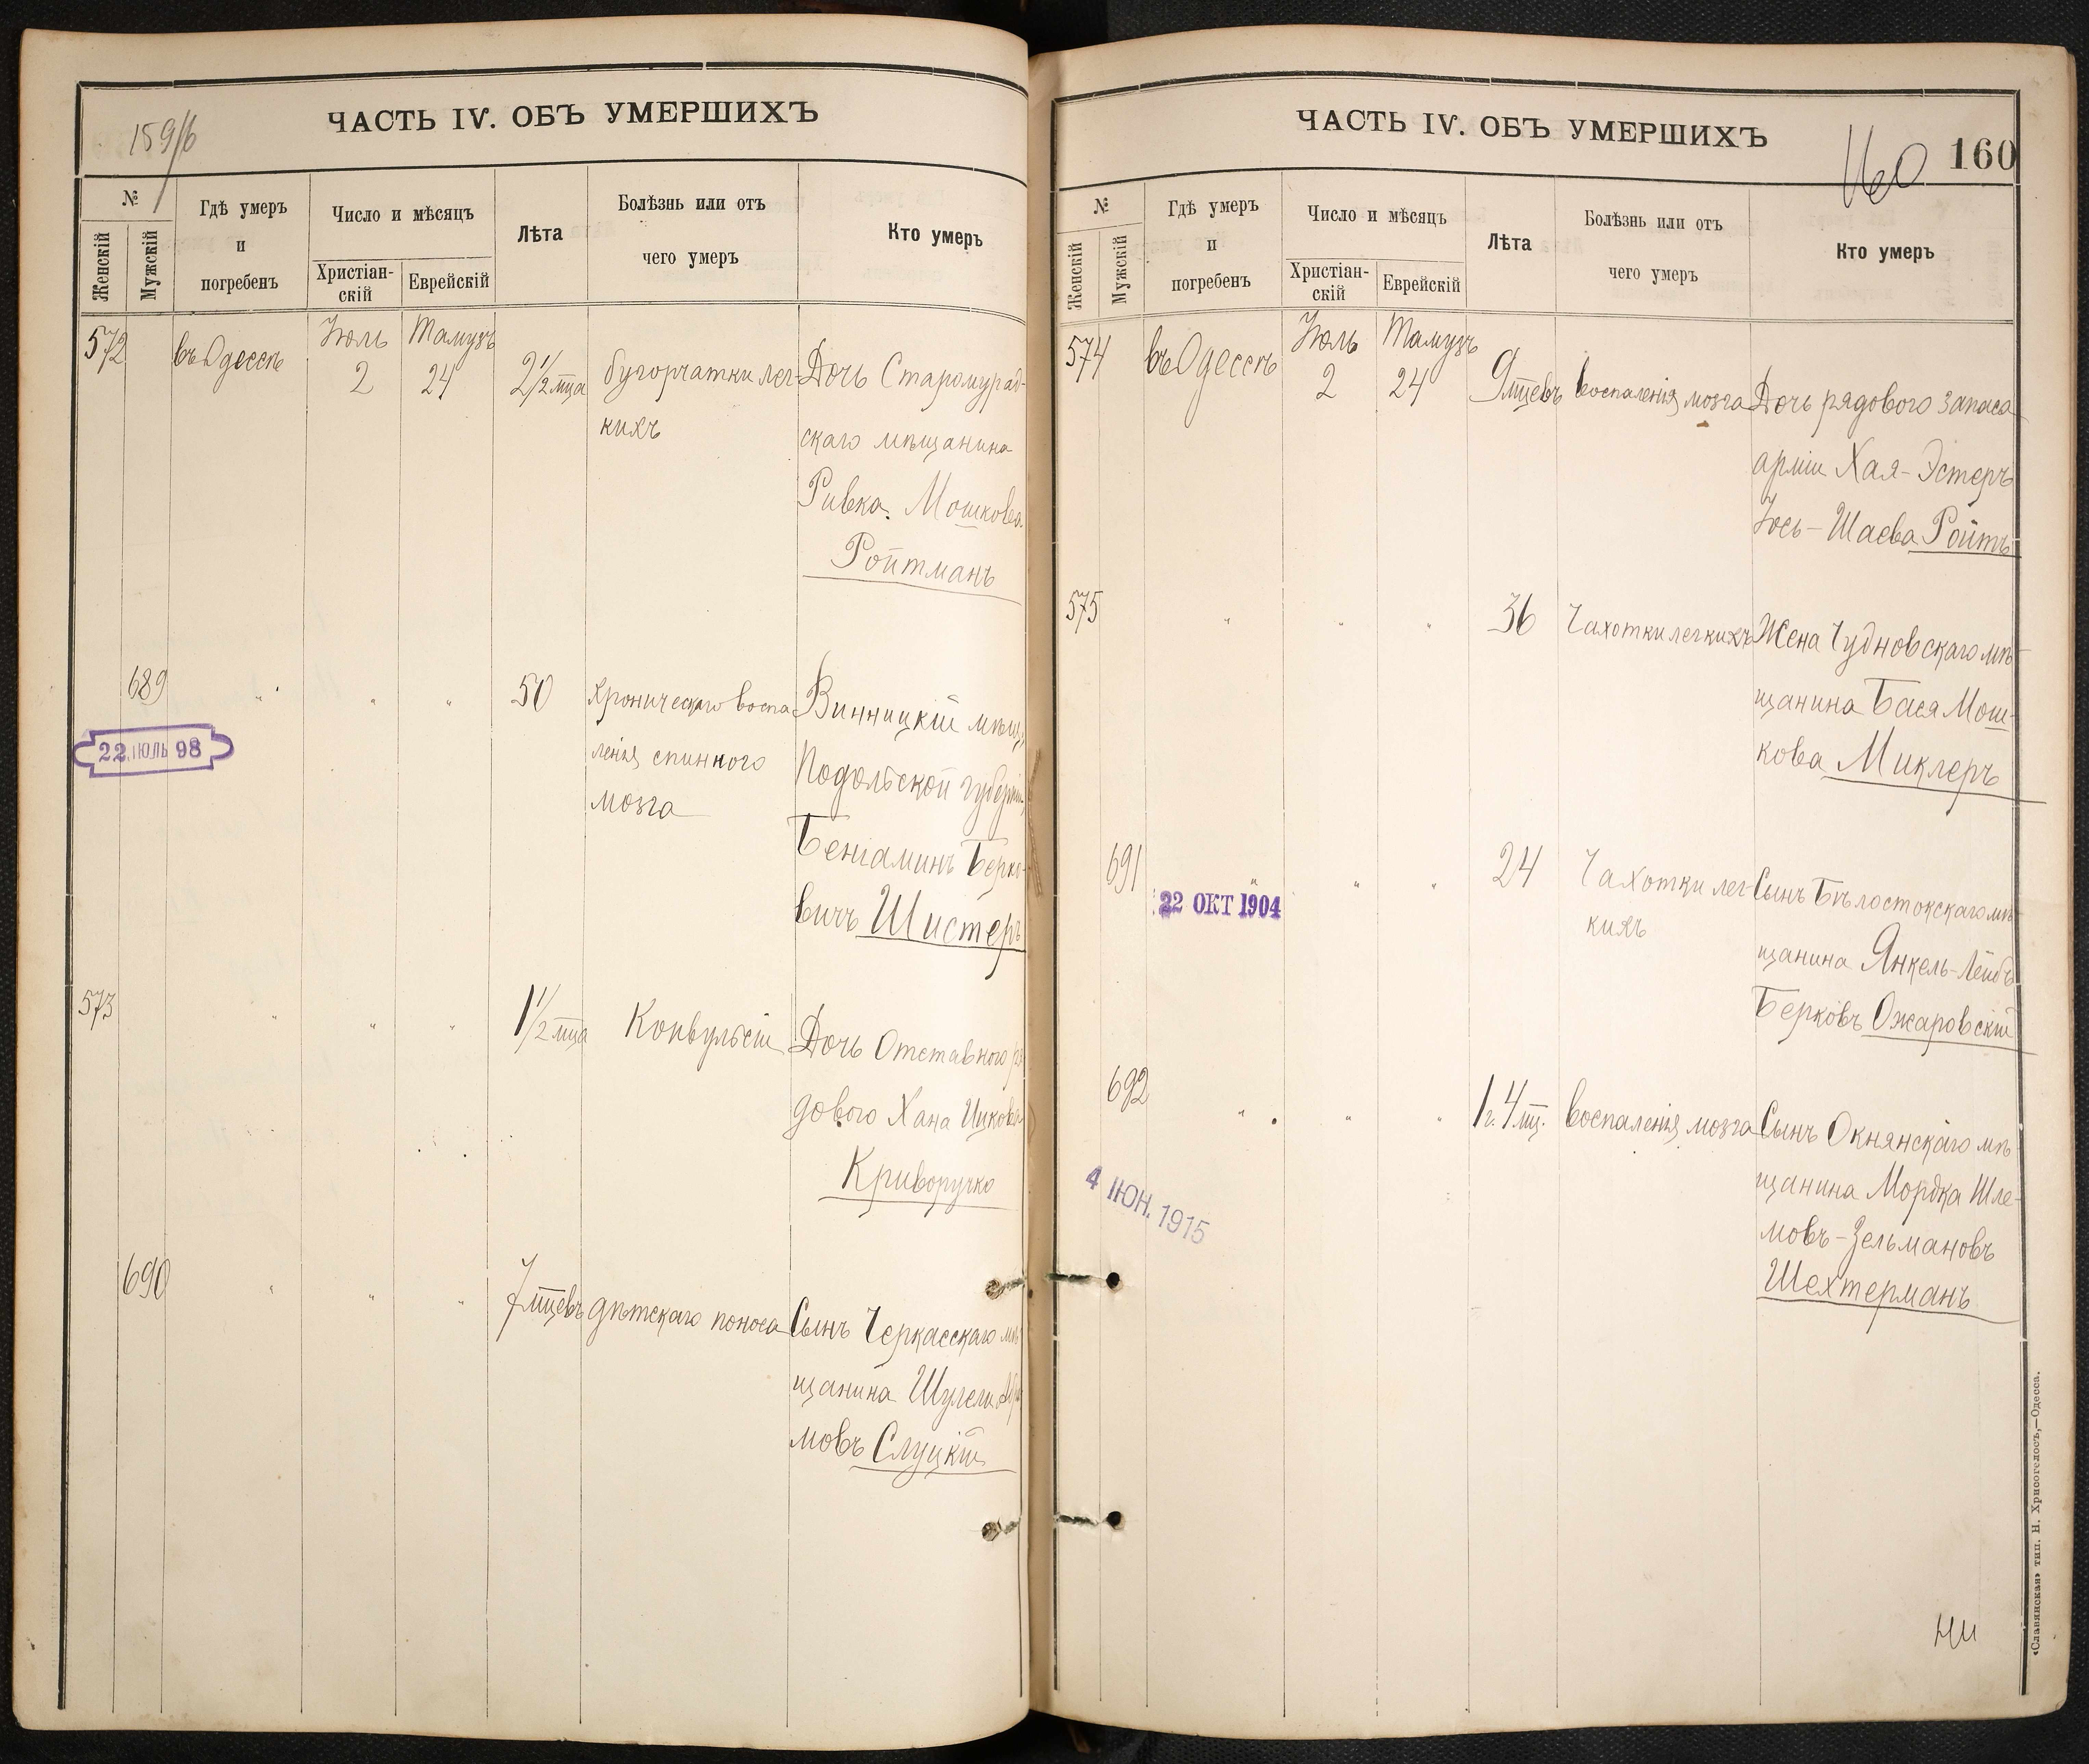 159/б
ЧАСТЬ IV. ОБЪ УМЕРШИХЪ
№
Женскій
Мужскій
Гдѣ умеръ
и
погребенъ
Число и мѣсяцъ
Христіан-
скій
Еврейскій
Лѣта
Болѣзнь или отъ
чего умеръ
Кто умеръ
572
въ Одессѣ
Іюль
2
Тамузъ
24
2 1/2 мца
бугорчатки лег-
кихъ
Дочь Старомурад-
скаго мѣщанина
Ривка Мошкова
Ройтманъ
689
22 ІЮЛЬ 98
" " " 50
хроническаго воспа
ленія спинного
мозга
Винницкій мѣщ.
Подольской губерніи
Беніаминъ Берко-
вичъ Шистеръ
573
" " " 1 1/2 мца
Конвульсіи
Дочь Отставного ря
дового Хана Ицкова
Криворучко
690
" " " 7 мцевъ
дѣтскаго поноса
Сынъ Черкасскаго мѣ
щанина
мовъ Слуцкій
ЧАСТЬ IV. ОБЪ УМЕРШИХЪ
160
160
№
Женскій
Мужскій
Гдѣ умеръ
и
погребенъ
Число и мѣсяцъ
Христіан-
скій
Еврейскій
Лѣта
Болѣзнь или отъ
чего умеръ
Кто умеръ
574
въ Одессѣ
Іюль
2
Тамузъ
24
9 мцевъ
воспаленія мозга
Дочь рядового запаса
арміи Хая-Эстеръ
Іось-Шаева Ройтъ
575
" " " 36
Чахотки легкихъ
Жена Чудновскаго мѣ-
щанина Бася Мош-
кова Миклеръ
691
22 ОКТ 1904
" " " 24
Чахотки лег-
кихъ
Сынъ Бѣлостокскаго мѣ-
щанина Янкель-Лейбъ
Берковъ Ожаровскій
692
" " " 1 г. 4 мц.
воспаленія мозга
Сынъ Окнянскаго мѣ-
щанина Мордка Шле-
мовъ-Зельмановъ
Шехтерманъ
4 ІЮН. 1915
«Славянская» тип. Н. Хрисогелосъ,—Одесса.